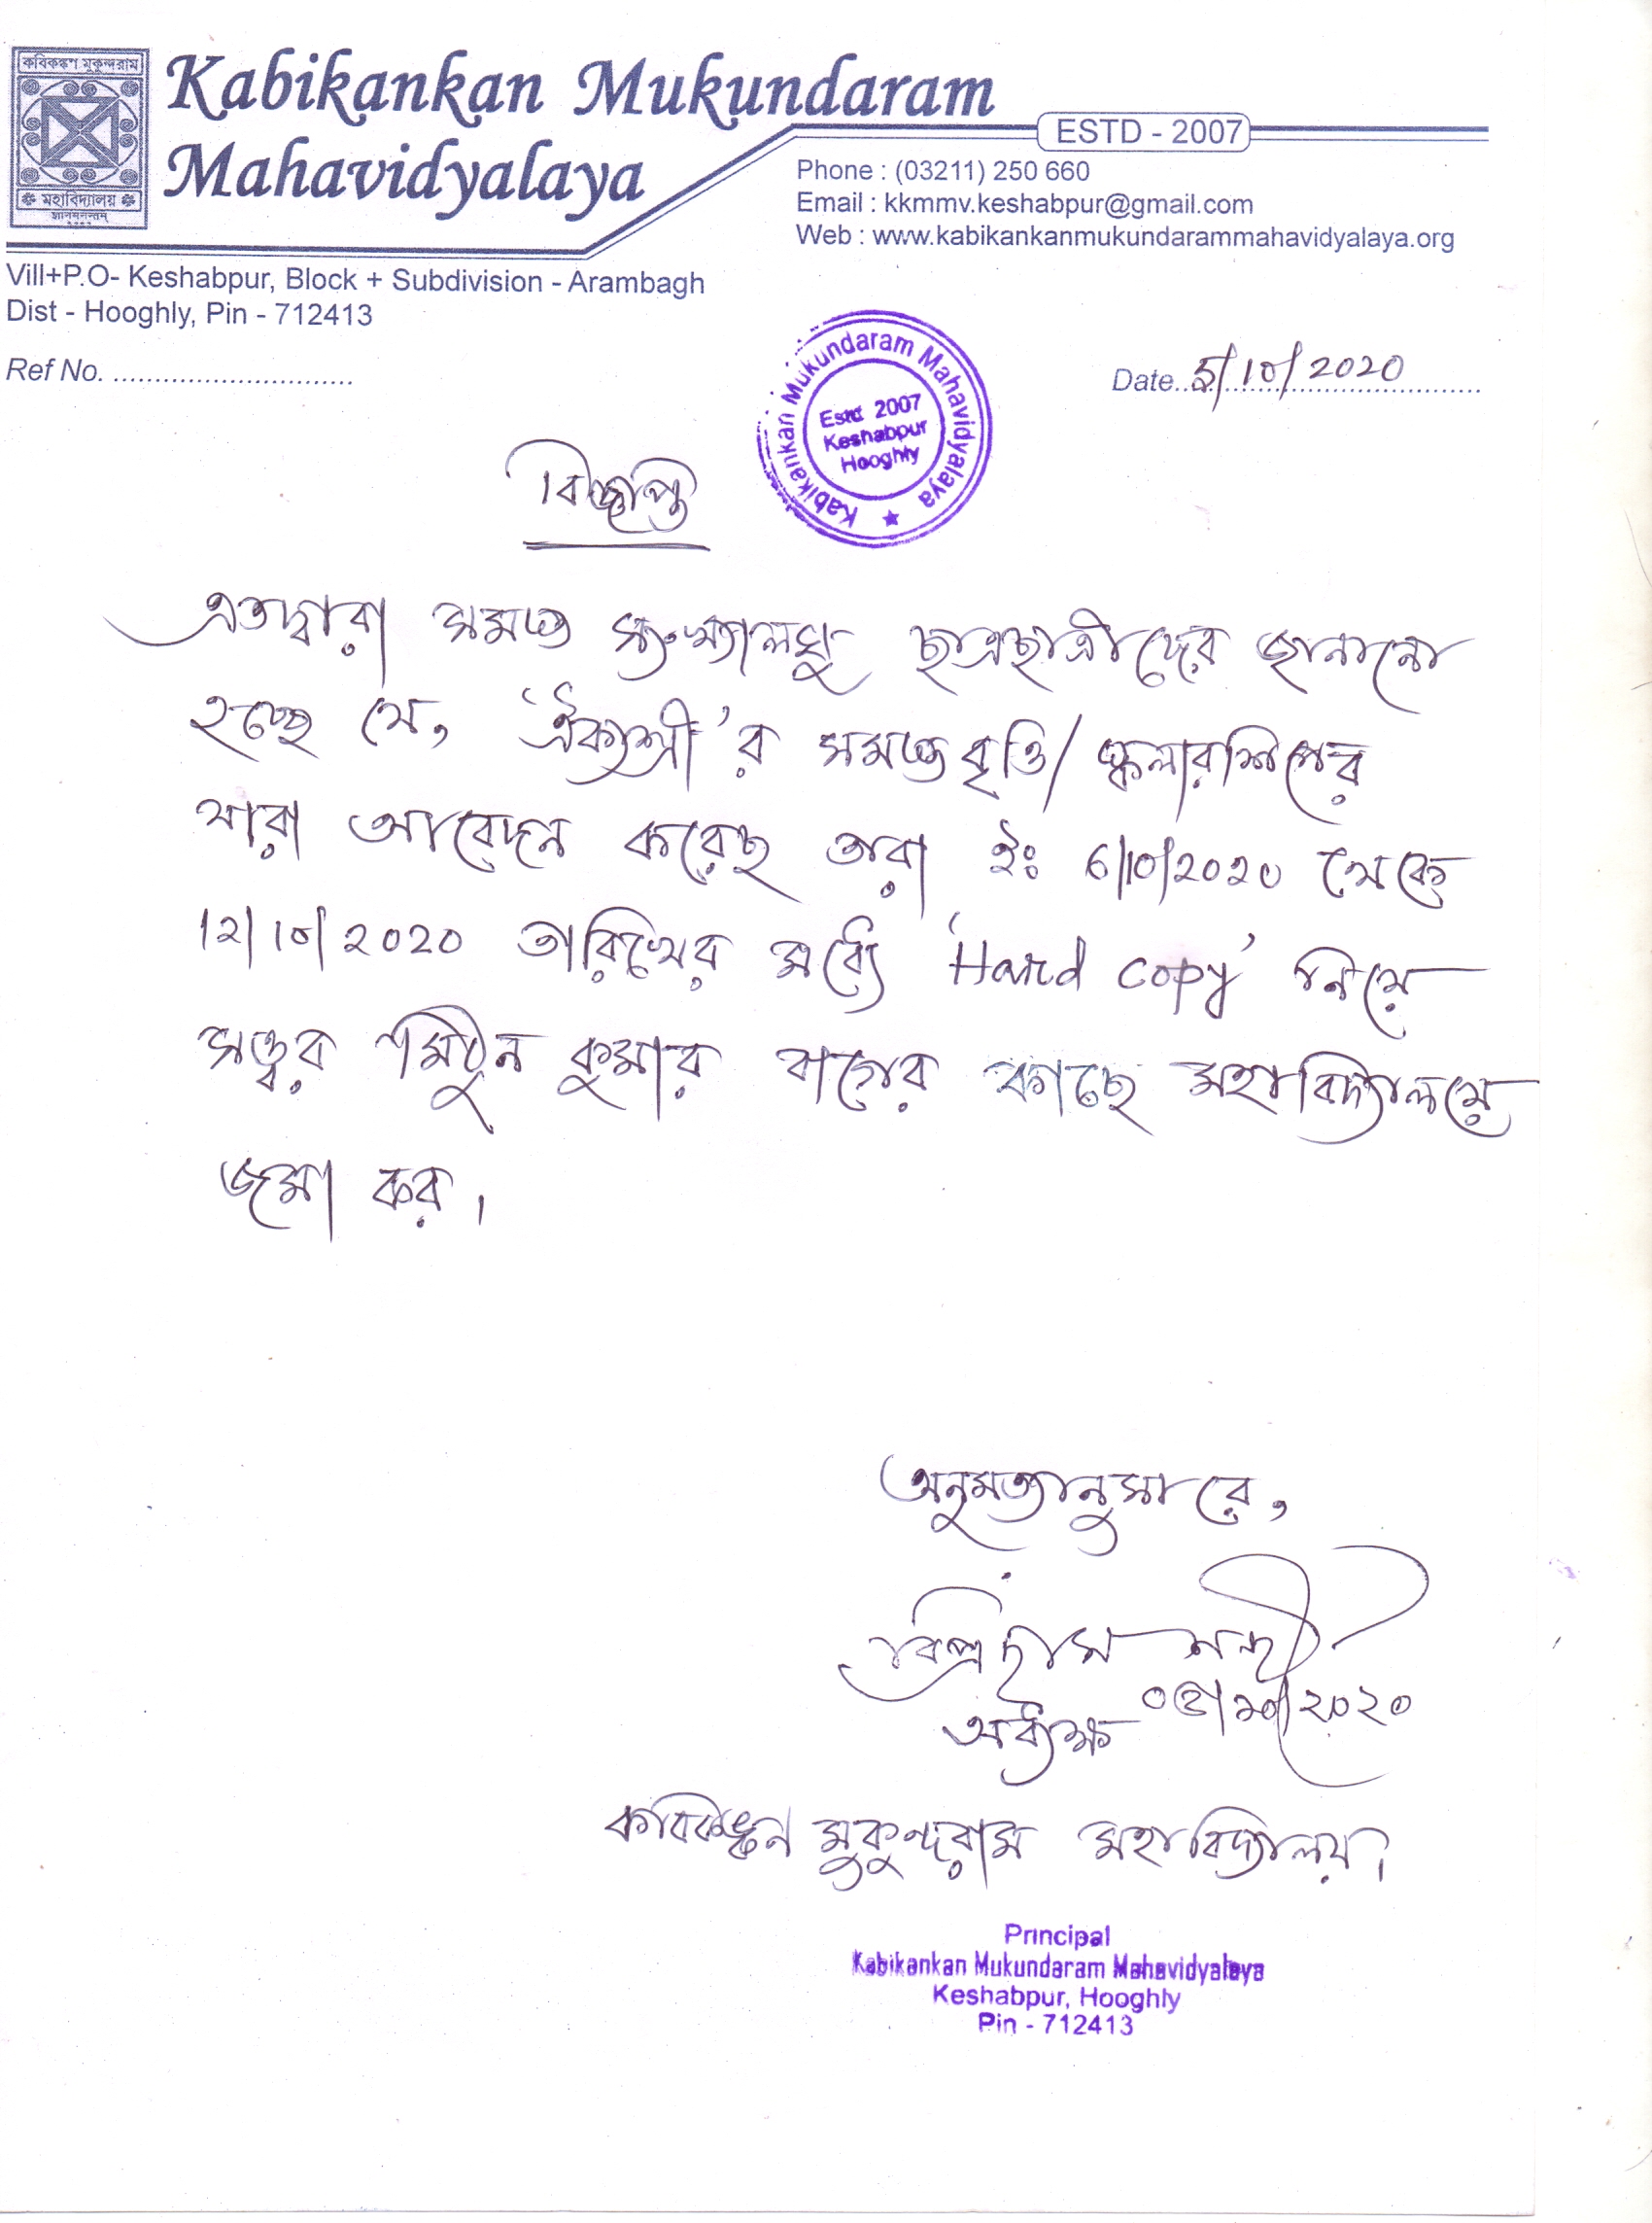 কবিকঙ্কণ মুকুন্দরাম
মহাবিদ্যালয়
Kabikankan Mukundaram
Mahavidyalaya
ESTD - 2007
Phone : (03211) 250 660
Email : kkmmv.keshabpur@gmail.com
Web : www.kabikankanmukundarammahavidyalaya.org
Vill+P.O- Keshabpur, Block + Subdivision - Arambagh
Dist - Hooghly, Pin - 712413
Ref No. ............................
Date. 5/10/2020
Kabikankan Mukundaram Mahavidyalaya ★
Estd 2007
Keshabpur
Hooghly
বিজ্ঞপ্তি
এতদ্বারা সমস্ত সংখ্যালঘু ছাত্রছাত্রীদের জানানো
হচ্ছে যে, 'ঐক্যশ্রী'র সমস্ত বৃত্তি/স্কলারশিপের
যারা আবেদন করেছ তারা ইং 6/10/2020 থেকে
12/10/2020 তারিখের মধ্যে 'Hard copy' নিয়ে
সত্ত্বর মিঠুন কুমার বাগের কাছে মহাবিদ্যালয়ে
জমা কর।
অনুমত্যানুসারে,
০৫/১০/২০২০
অধ্যক্ষ
কবিকঙ্কন মুকুন্দরাম মহাবিদ্যালয়।
Principal
Kabikankan Mukundaram Mahavidyalaya
Keshabpur, Hooghly
Pin - 712413